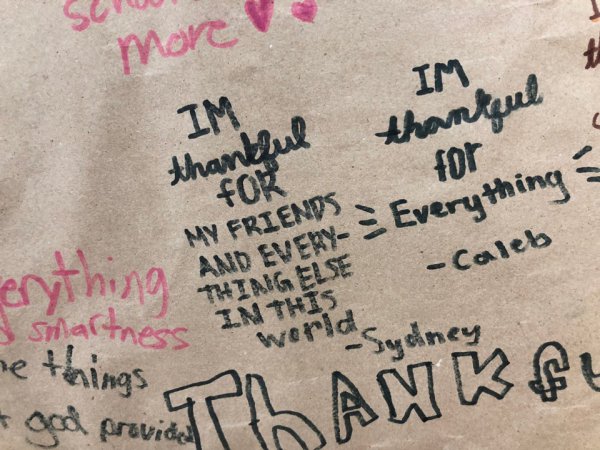 more
IM
thankful
FOR
MY FRIENDS
AND EVERY-
THING ELSE
IN THIS
world
-Sydney
IM
thankful
for
Everything
-Caleb
erything
smartness
things
god provided
ThANKfu